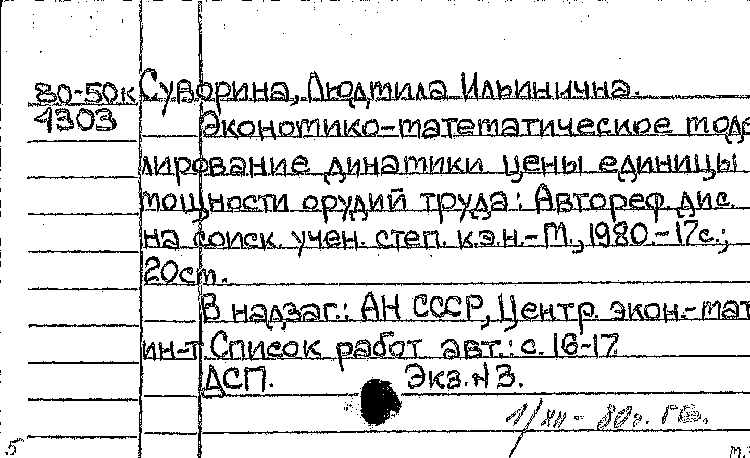 80-50к Суворина, Людмила Ильинична.
4303 Экономико-математическое моде
лирование динамики цены единицы
мощности орудий труда: Автореф. дис.
на соиск. учен. степ. к.э.н.-М., 1980.-17с.;
20см.
В надзаг.: АН СССР, Центр. экон.-мат
ин-т. Список работ авт.: с. 16-17.
ДСП. Экз. N 3.
1/XII-80г.
5